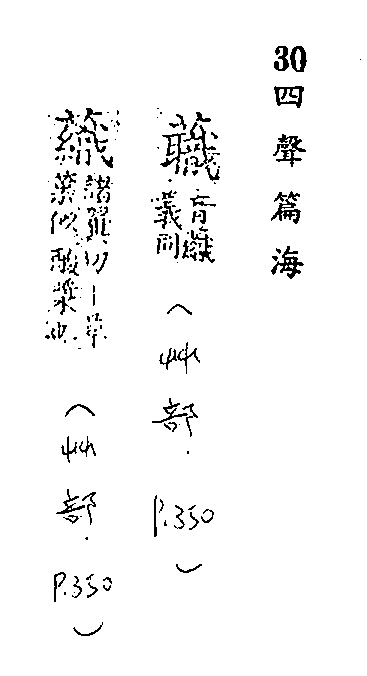 30四聲篇海
蘵
音
義同
(艸部.P.350)
諸翼切丨草
葉似酸漿也
(艸部.P.350)